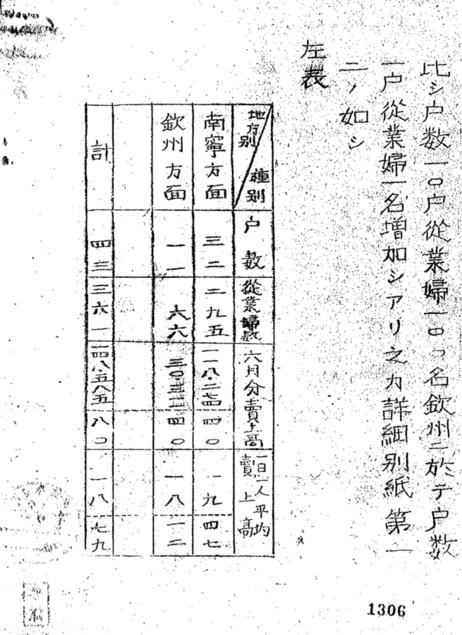 比シ户数一〇户從業婦一〇〇名欽州ニ於テ户数
一户從業婦一名增加シアリ之カ詳細別紙第一
二ノ如シ
左表
地方別 種別 户数 從業婦数 六月分賣上高 一日一人平均賣上高
南寧方面 三二 二九五 一一八二七四 四〇 一九 四七
欽州方面 一一 六六 三〇三一一 四〇 一八 一二
計 四三 三六一 一四八五八五 八〇 一八 七九
1306